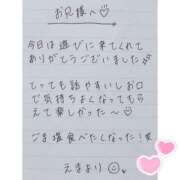 お兄様へ
今日は遊びに来てくれて
ありがとうございました
とっても話やすいしお口
で気持ちよくなってもら
えて楽しかった〜
ごま塩食べたくなった!笑
えまより